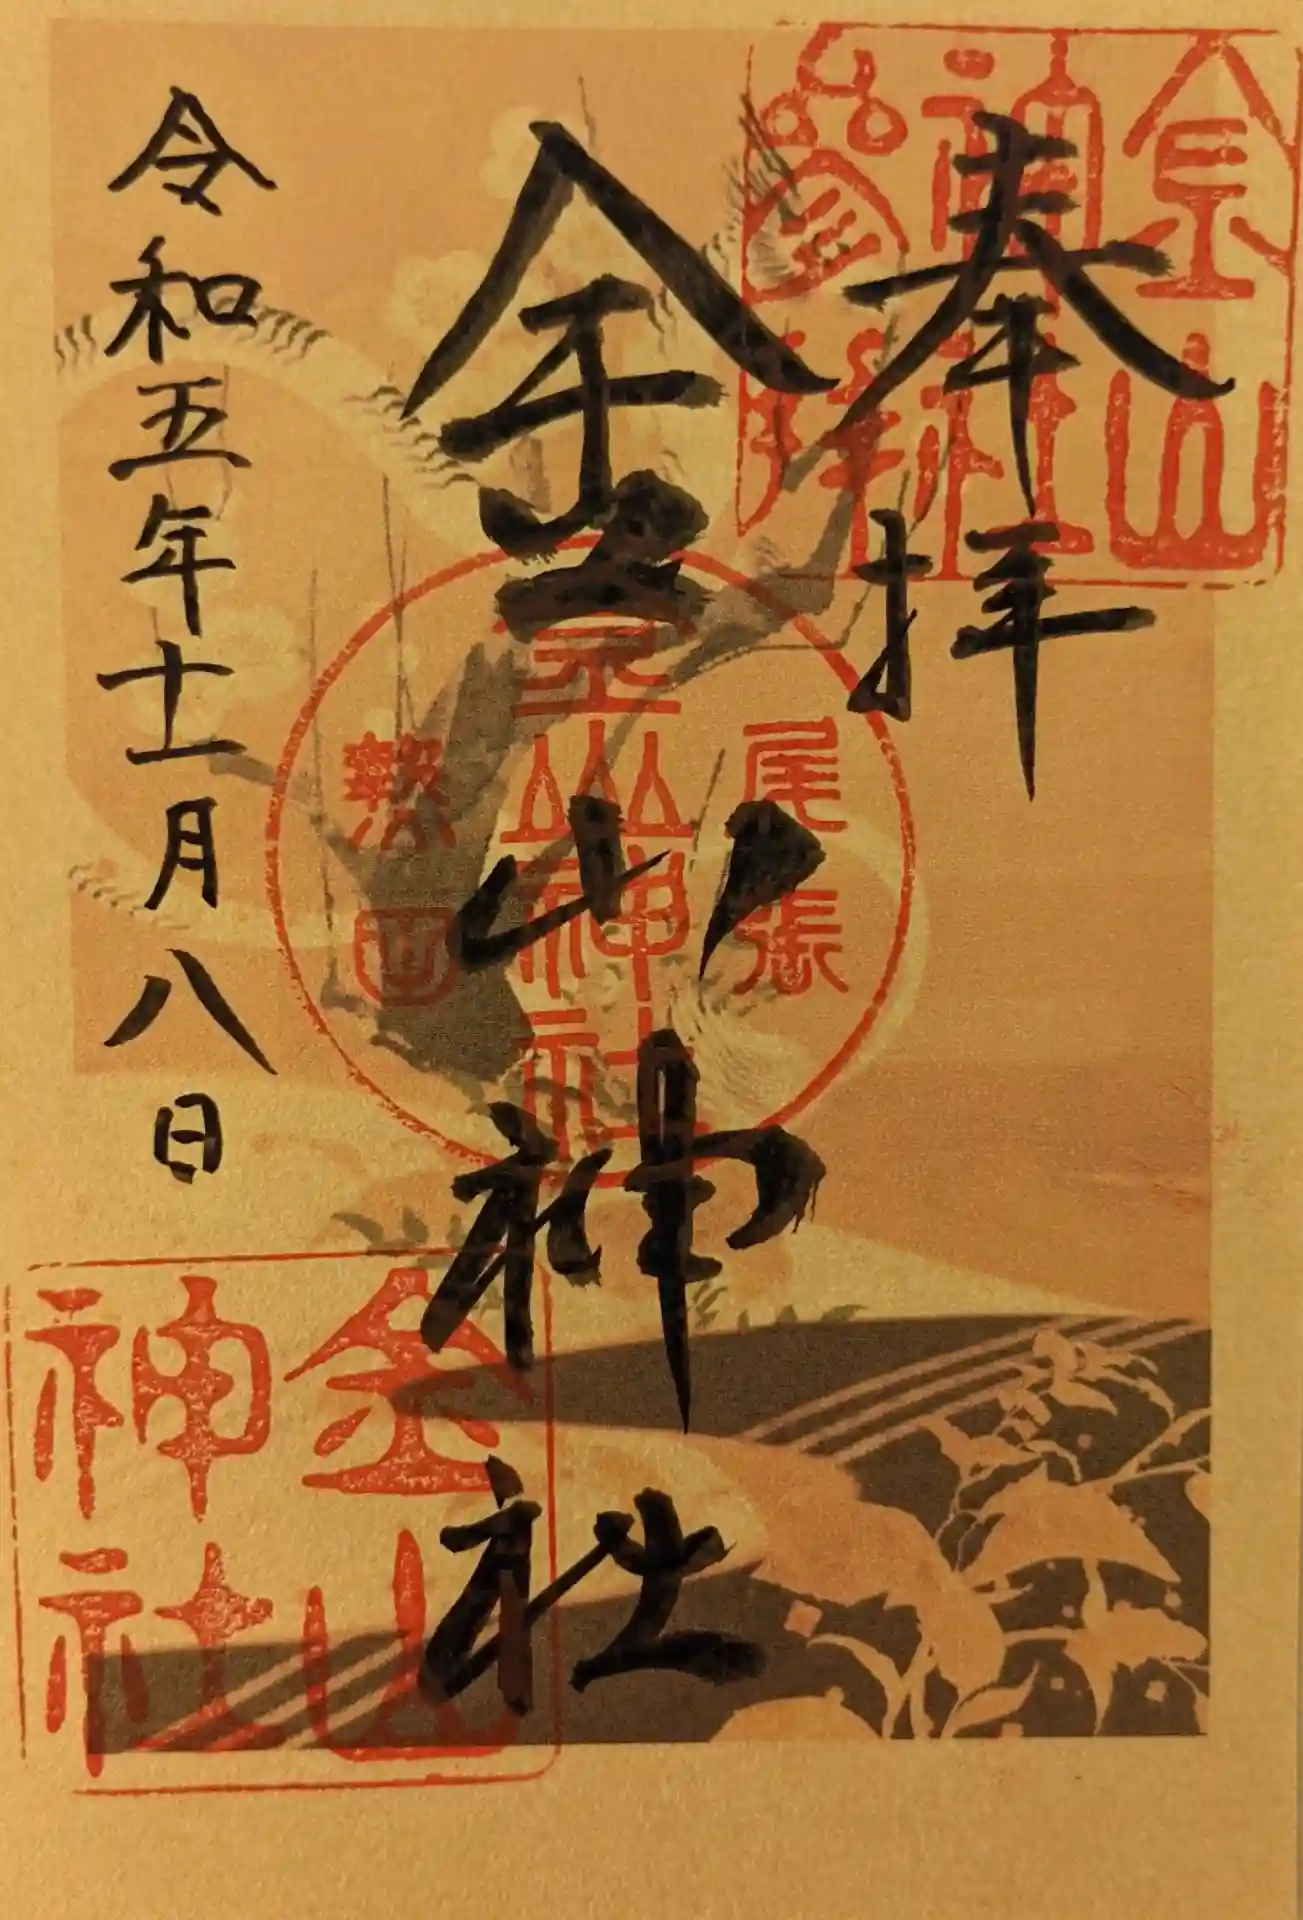 奉拝
金山神社
令和五年十一月八日
尾張
金山神社
熱田
金山
神社
金山
神社